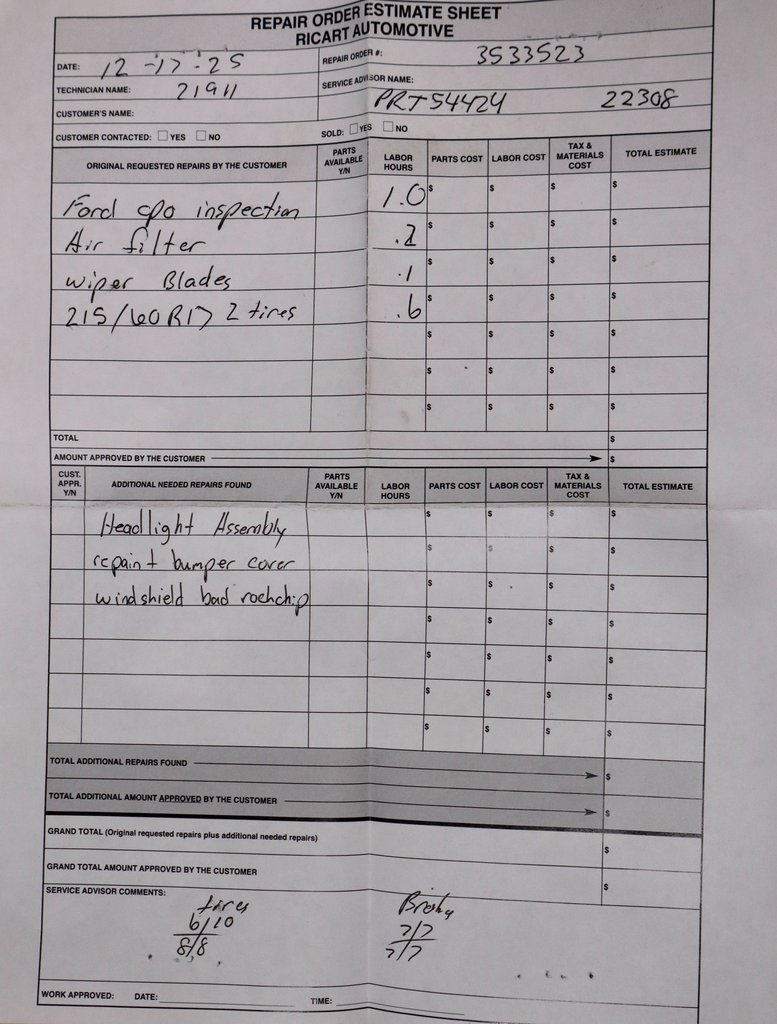 REPAIR ORDER ESTIMATE SHEET
RICART AUTOMOTIVE
DATE: 12-17-25 REPAIR ORDER #: 3533523
TECHNICIAN NAME: 21911 SERVICE ADVISOR NAME: PRT54424 22308
CUSTOMER'S NAME:
CUSTOMER CONTACTED: YES NO SOLD: YES NO
ORIGINAL REQUESTED REPAIRS BY THE CUSTOMER PARTS AVAILABLE Y/N LABOR HOURS PARTS COST LABOR COST TAX & MATERIALS COST TOTAL ESTIMATE
Ford cpo inspection 1.0 $ $ $ $
Air filter .2 $ $ $ $
wiper Blades .1 $ $ $ $
215/60R17 2 tires .6 $ $ $ $
$ $ $ $
$ $ $ $
$ $ $ $
TOTAL $
AMOUNT APPROVED BY THE CUSTOMER $
CUST. APPR. Y/N ADDITIONAL NEEDED REPAIRS FOUND PARTS AVAILABLE Y/N LABOR HOURS PARTS COST LABOR COST TAX & MATERIALS COST TOTAL ESTIMATE
Headlight Assembly $ $ $ $
repaint bumper cover $ $ $ $
windshield bad rockchip $ $ $ $
$ $ $ $
$ $ $ $
$ $ $ $
$ $ $ $
TOTAL ADDITIONAL REPAIRS FOUND $
TOTAL ADDITIONAL AMOUNT APPROVED BY THE CUSTOMER $
GRAND TOTAL (Original requested repairs plus additional needed repairs) $
GRAND TOTAL AMOUNT APPROVED BY THE CUSTOMER $
SERVICE ADVISOR COMMENTS:
tires
6/10 7/7
8/8 7/7
WORK APPROVED: DATE: TIME: